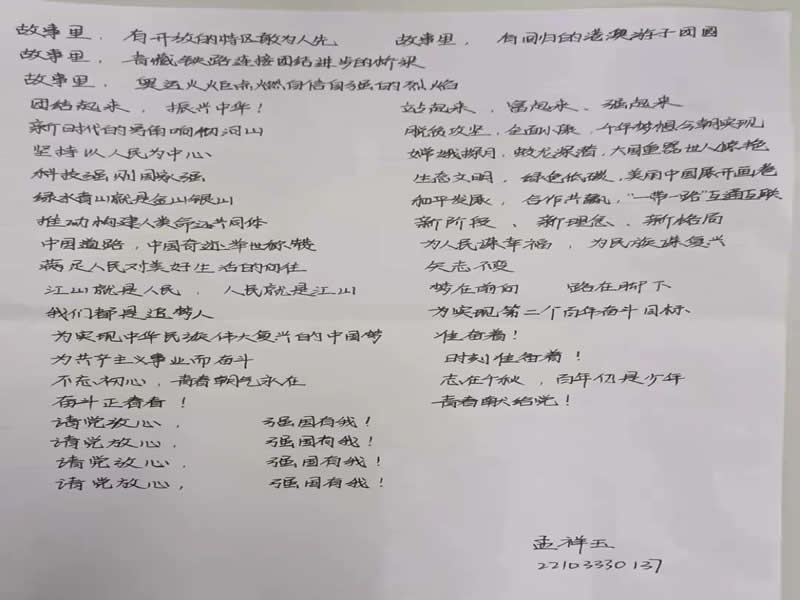 故事里，有开放的特区敢为人先 故事里，有回归的港澳游子团圆
故事里，青藏铁路连接团结进步的桥梁
故事里，奥运火炬点燃自信自强的烈焰
团结起来，振兴中华！ 站起来、富起来、强起来
新时代的号角响彻河山 脱贫攻坚，全面小康，千年梦想今朝实现
坚持以人民为中心 嫦娥探月，蛟龙深潜，大国重器世人惊艳
科技强则国家强 生态文明，绿色低碳，美丽中国展开画卷
绿水青山就是金山银山 和平发展，合作共赢，“一带一路”互通互联
推动构建人类命运共同体 新阶段、新理念、新格局
中国道路，中国奇迹举世称赞 为人民谋幸福，为民族谋复兴
满足人民对美好生活的向往 矢志不变
江山就是人民，人民就是江山 梦在前方 路在脚下
我们都是追梦人 为实现第二个百年奋斗目标、
为实现中华民族伟大复兴的中国梦 准备着！
为共产主义事业而奋斗 时刻准备着！
不忘初心，青春朝气永在 志在千秋，百年仍是少年
奋斗正青春！ 青春献给党！
请党放心， 强国有我！
请党放心， 强国有我！
请党放心， 强国有我！
请党放心， 强国有我！
孟祥玉
22103330137